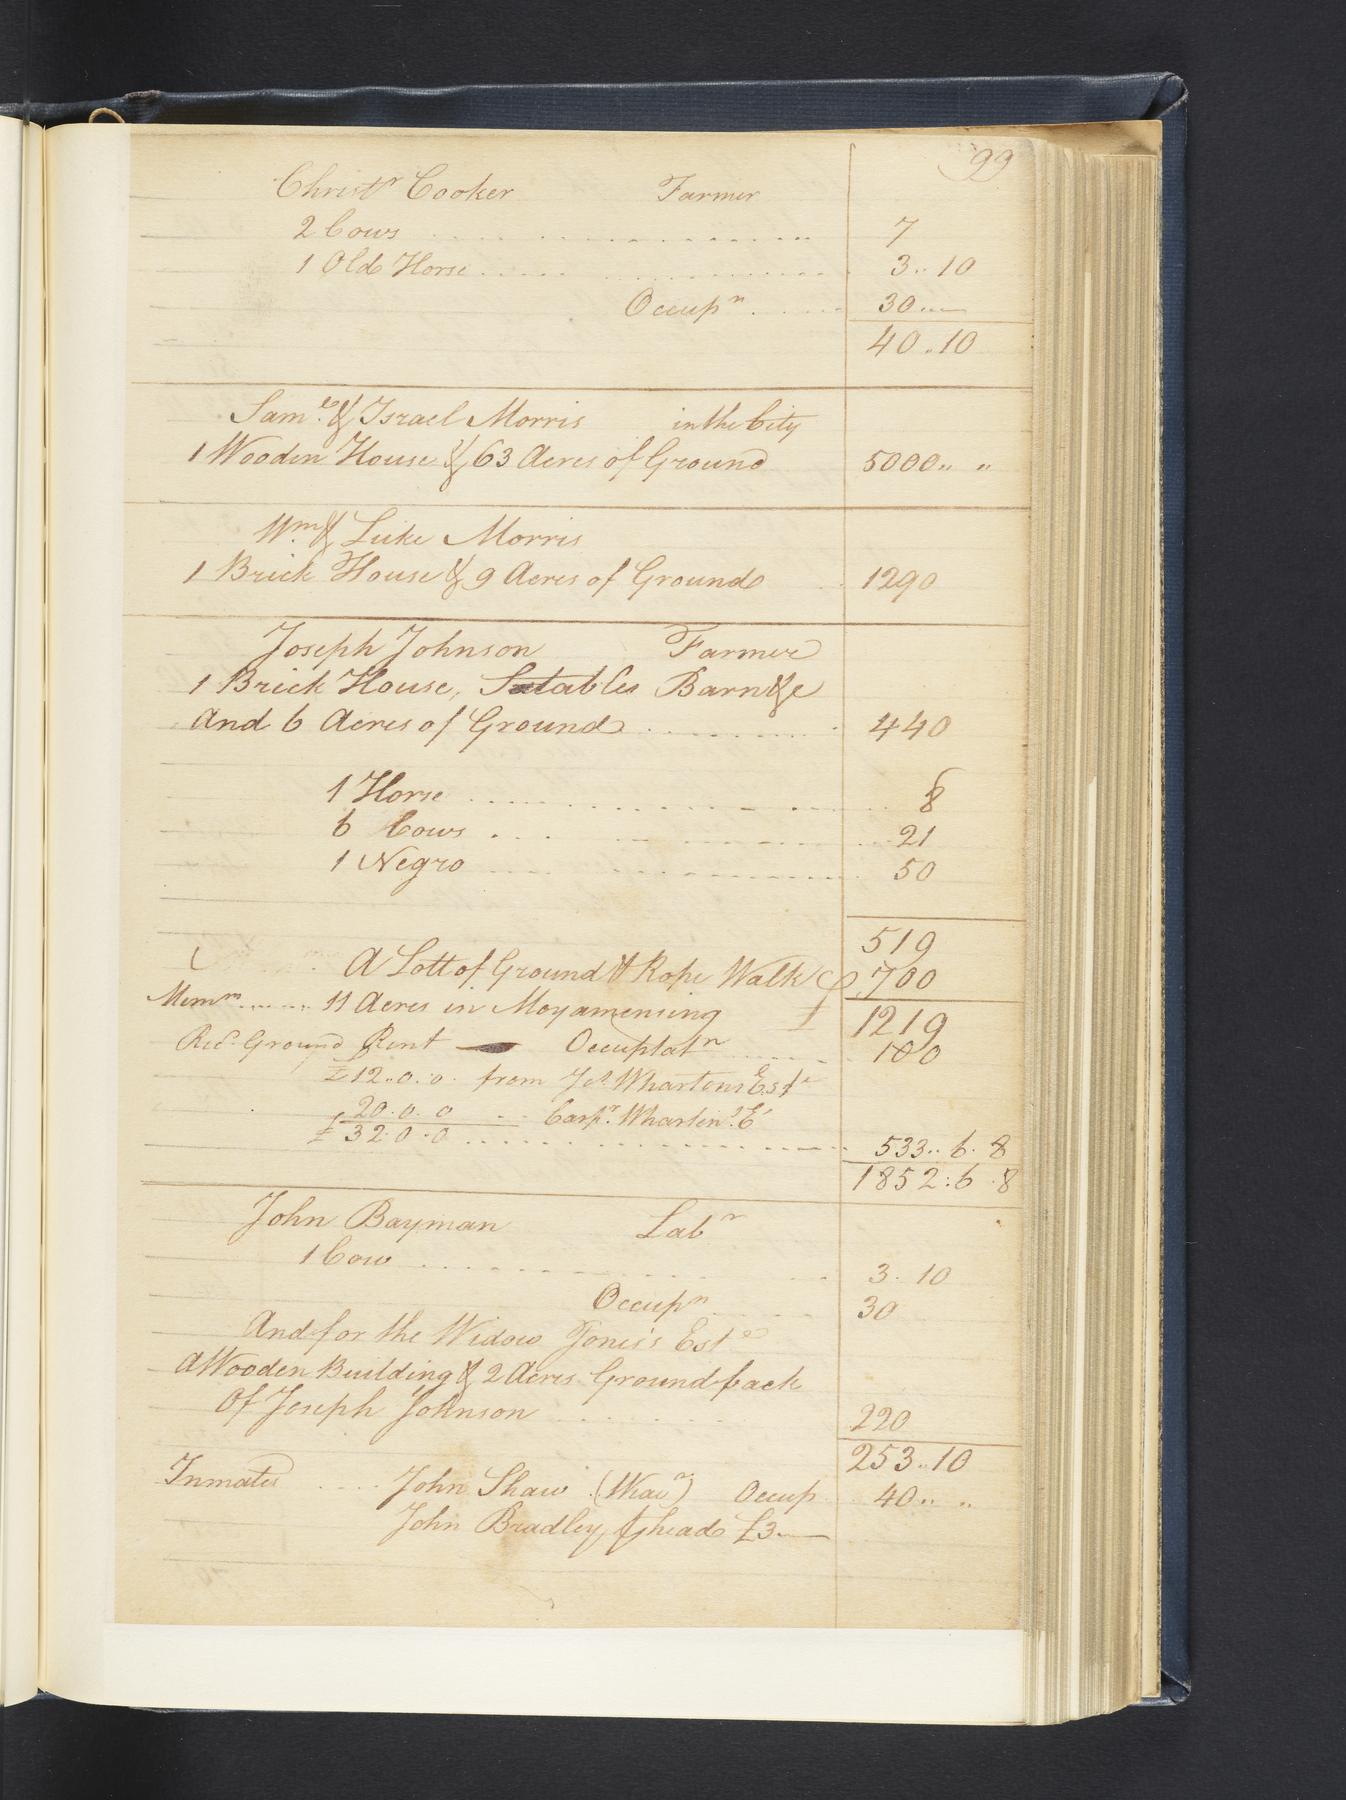 99
Christr Cooker Farmer
2 Cows 7
1 Old Horse 3..10
Occupn 30..
40..10
Saml & Israel Morris in the City
1 Wooden House & 63 Acres of Ground 5000.. ..
Wm & Luke Morris
1 Brick House & 9 Acres of Ground 1290
Joseph Johnson Farmer
1 Brick House, Statables Barn &c
And 6 Acres of Ground 440
1 Horse 8
6 Cows 21
1 Negro 50
519
A Lott of Ground & Rope Walk 700
Memm 11 Acres in Moyamensing 1219
Recd Ground Rent Occuptatn 100
£12..0..0. from Whartons Este
20.0.0 Carpr. Wharton's E
£32.0.0 533..6.8
1852:6.8
John Bayman Labr
1 Cow 3.10
Occupn 30
And for the Widow Jones's Este
A Wooden Building & 2 Acres Ground back
Of Joseph Johnson 220
253..10
Inmates John Shaw (Weavr) Occup 40.. ..
John Bradley, head £3